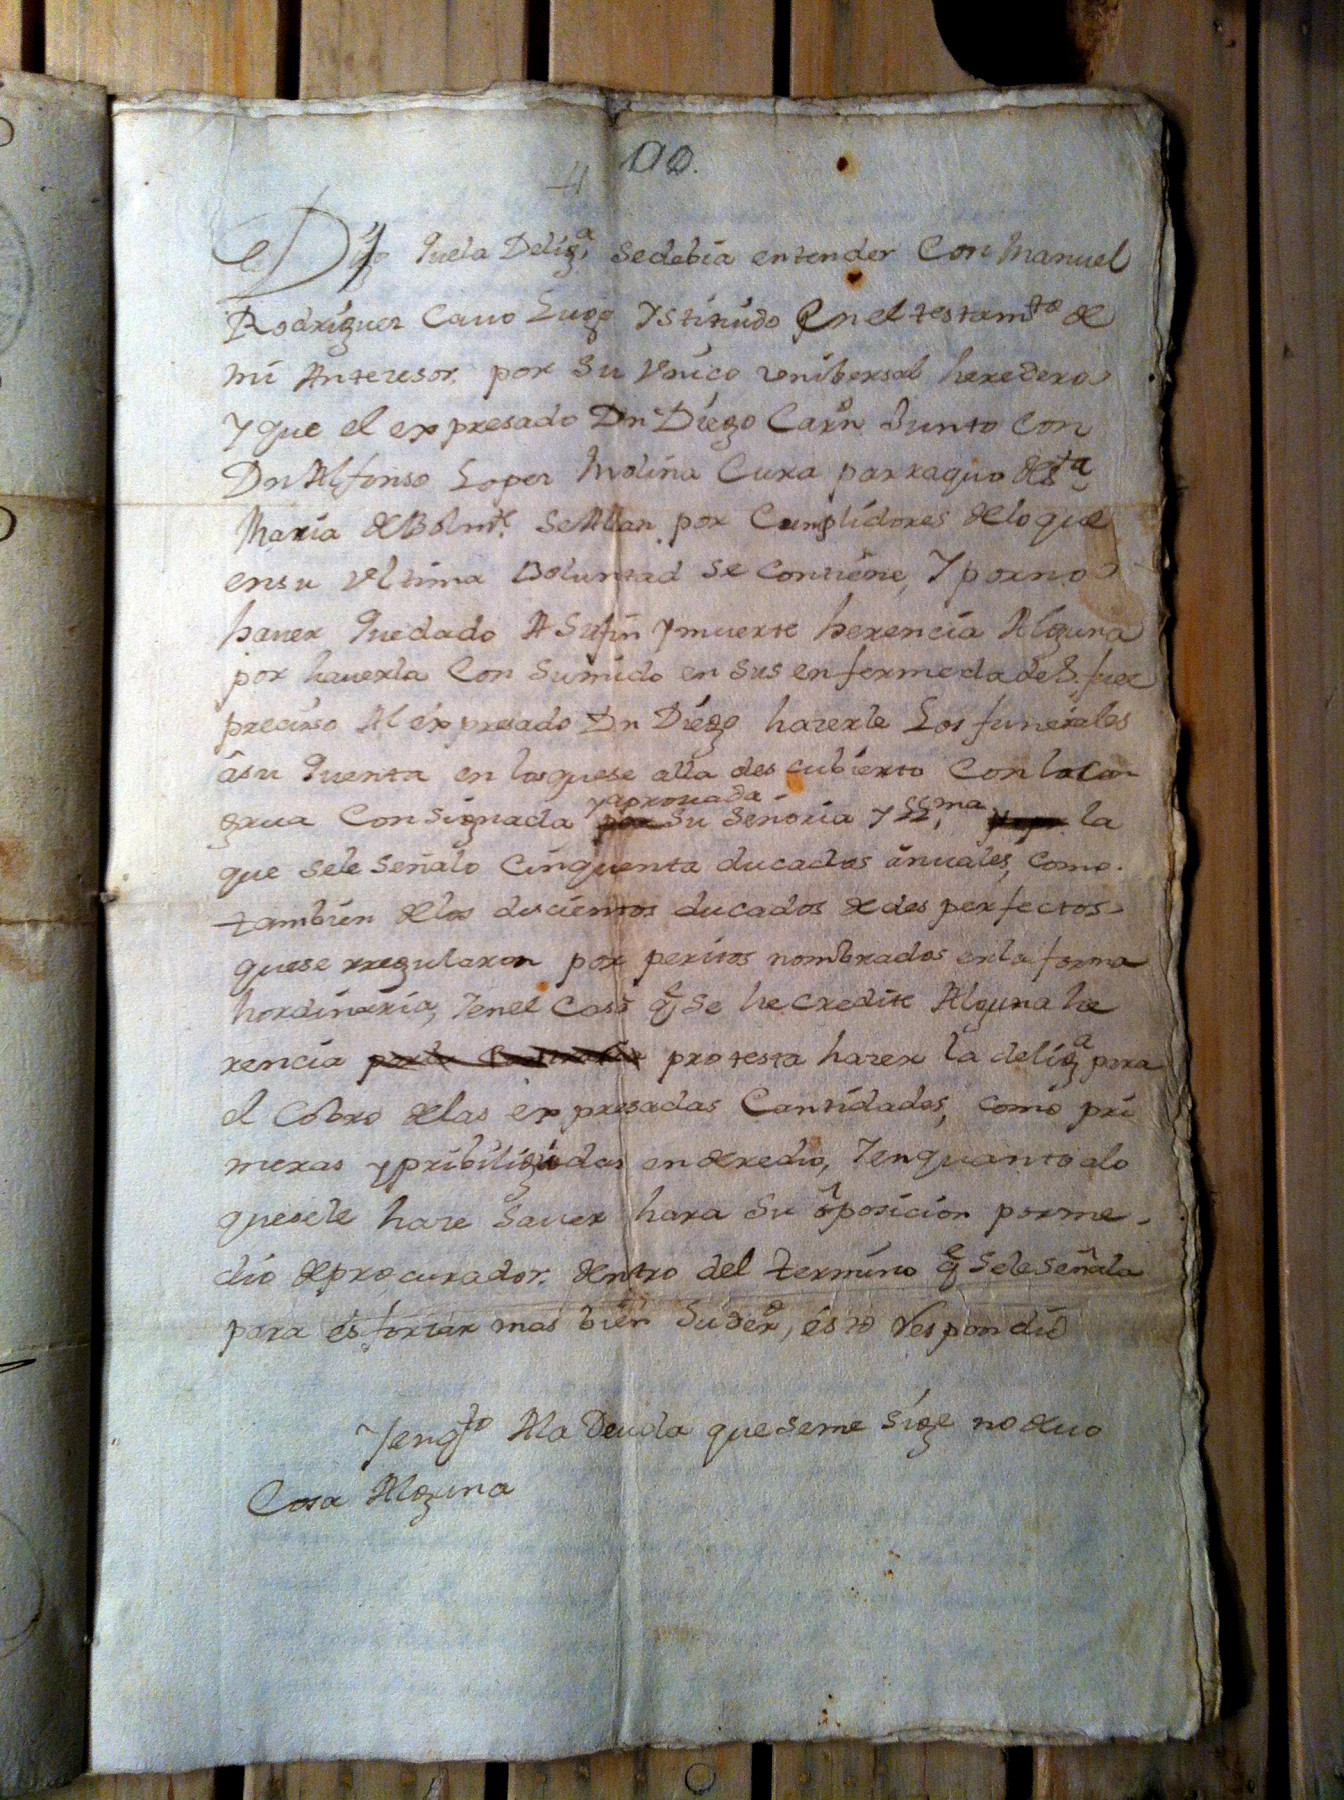 100.
Dijo Quela Delig.ª sedebia entender Con Manuel
Rodriguez Cano Lugo Ystituido En el testam.to de
mi Antezesor. por su Unico vnibersal heredero
y que el expresado Dn Diego Carn Junto con
Dn Alfonso Lopez Molina Cura parraquo de S.ta
Maria de Bolm.te se Allan por Cumplidores delo que
ensu Vltima Boluntad se contiene, Y porno
haver Quedado A Sufin y muerte herencia Alguna
por haverla Con Sumido en sus enfermedades, fue
preciso Al expresado Dn Diego hazerle Los funerales
âsu Quenta en los quese alla des cubierto Con la con
grua Consignada y aprovada por Su Señoria Y SS.ma la
que sele señalo Cinquenta ducados ânuales, como
tambien delos ducientos ducados de des perfectos
quese rregularon por peritos nombrados enla forma
hordinaria, Yenel Caso q.e se he credite Alguna he
rencia protesta hazer la delig.ª para
el Cobro delas expresadas Cantidades, como pri
meras y pribiligiadas en deredio, Yenquanto alo
quesele haze saver hara Su ôposicion porme
dio de procurador. dentro del termino q.e sele señala
para esforzar mas bien Suder.o, esto Respondió
Yenq.to Ala Deuda que seme sige no devo
Cosa Alguna